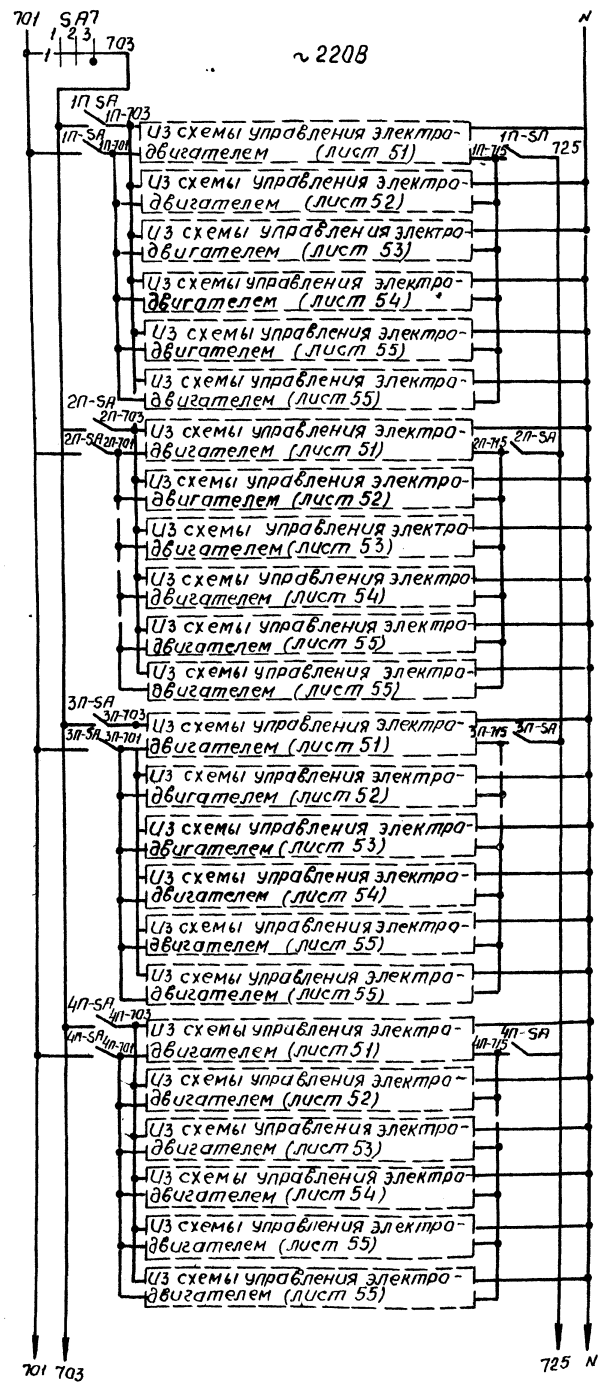 701 SA7 N
1 2 3 703
1 ~220В
1П-SA 1П-703
Из схемы управления электро-
1П-SA 1П-701 двигателем (лист 51) 1П-715 1П-SA 725
Из схемы управления электро-
двигателем (лист 52)
Из схемы управления электро-
двигателем (лист 53)
Из схемы управления электро-
двигателем (лист 54)
Из схемы управления электро-
двигателем (лист 55)
Из схемы управления электро-
двигателем (лист 55)
2П-SA 2П-703
Из схемы управления электро-
2П-SA 2П-701 двигателем (лист 51) 2П-715 2П-SA
Из схемы управления электро-
двигателем (лист 52)
Из схемы управления электро
двигателем (лист 53)
Из схемы управления электро
двигателем (лист 54)
Из схемы управления электро-
двигателем (лист 55)
Из схемы управления электро-
двигателем (лист 55)
3П-SA 3П-703
Из схемы управления электро-
3П-SA 3П-701 двигателем (лист 51) 3П-715 3П-SA
Из схемы управления электро-
двигателем (лист 52)
Из схемы управления электро-
двигателем (лист 53)
Из схемы управления электро-
двигателем (лист 54)
Из схемы управления электро-
двигателем (лист 55)
Из схемы управления электро-
двигателем (лист 55)
4П-SA 4П-703
Из схемы управления электро-
4П-SA 4П-701 двигателем (лист 51) 4П-715 4П-SA
Из схемы управления электро-
двигателем (лист 52)
Из схемы управления электро-
двигателем (лист 53)
Из схемы управления электро
двигателем (лист 54)
Из схемы управления электро-
двигателем (лист 55)
Из схемы управления электро-
двигателем (лист 55)
701 703 725 N